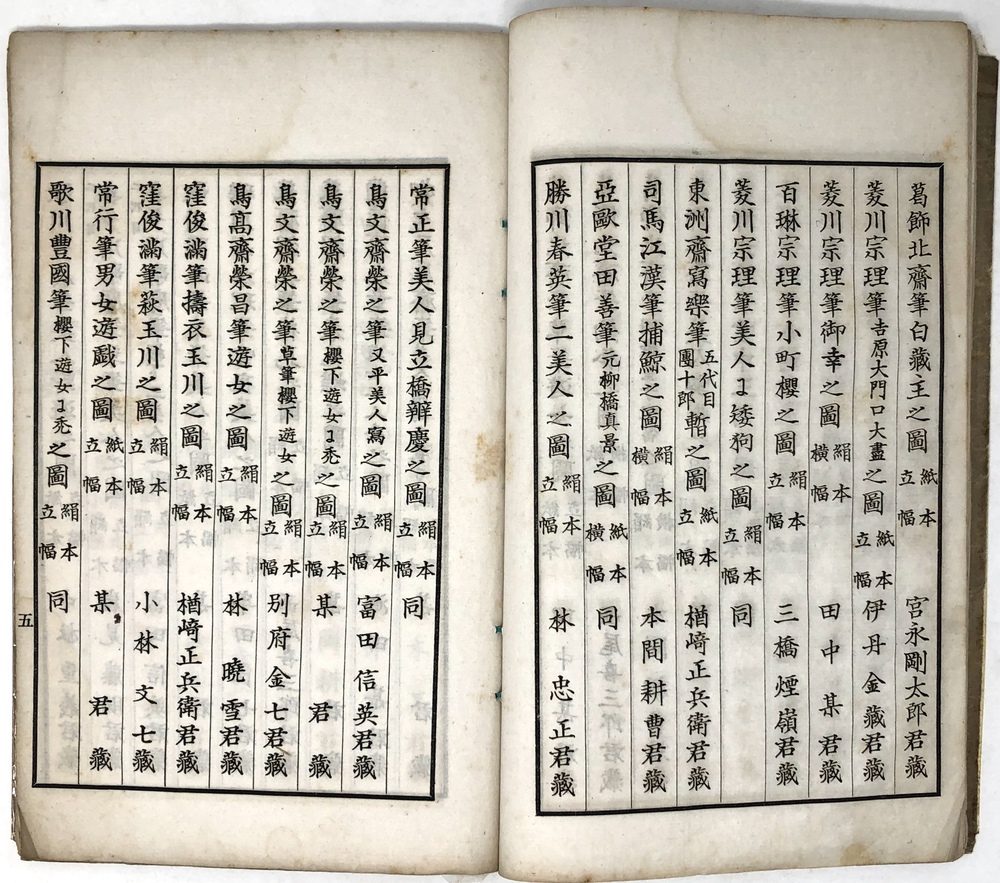 葛飾北齋筆白藏主之圖 紙本立幅 宮永剛太郎君藏
菱川宗理筆吉原大門口大盡之圖 紙本立幅 伊丹金藏君藏
菱川宗理筆御幸之圖 絹本横幅 田中某君藏
百琳宗理筆小町櫻之圖 絹本立幅 三橋煙嶺君藏
菱川宗理筆美人ニ矮狗之圖 絹本立幅 同
東洲齋寫樂筆五代目團十郎暫之圖 紙本立幅 楢﨑正兵衛君藏
司馬江漢筆捕鯨之圖 絹本横幅 本間耕曹君藏
亞歐堂田善筆元柳橋真景之圖 紙本横幅 同
勝川春英筆二美人之圖 絹本立幅 林忠正君藏
常正筆美人見立橋辨慶之圖 絹本立幅 同
鳥文齋榮之筆又平美人寫之圖 絹本立幅 富田信英君藏
鳥文齋榮之筆櫻下遊女ニ禿之圖 絹本立幅 某君藏
鳥文齋榮之筆草筆櫻下遊女之圖 絹本立幅 別府金七君藏
鳥高齋榮昌筆遊女之圖 絹本立幅 林曉雪君藏
窪俊滿筆擣衣玉川之圖 絹本立幅 楢﨑正兵衛君藏
窪俊滿筆萩玉川之圖 絹本立幅 小林文七君藏
常行筆男女遊戲之圖 紙本立幅 某君藏
歌川豐國筆櫻下遊女ニ禿之圖 絹本立幅 同
五